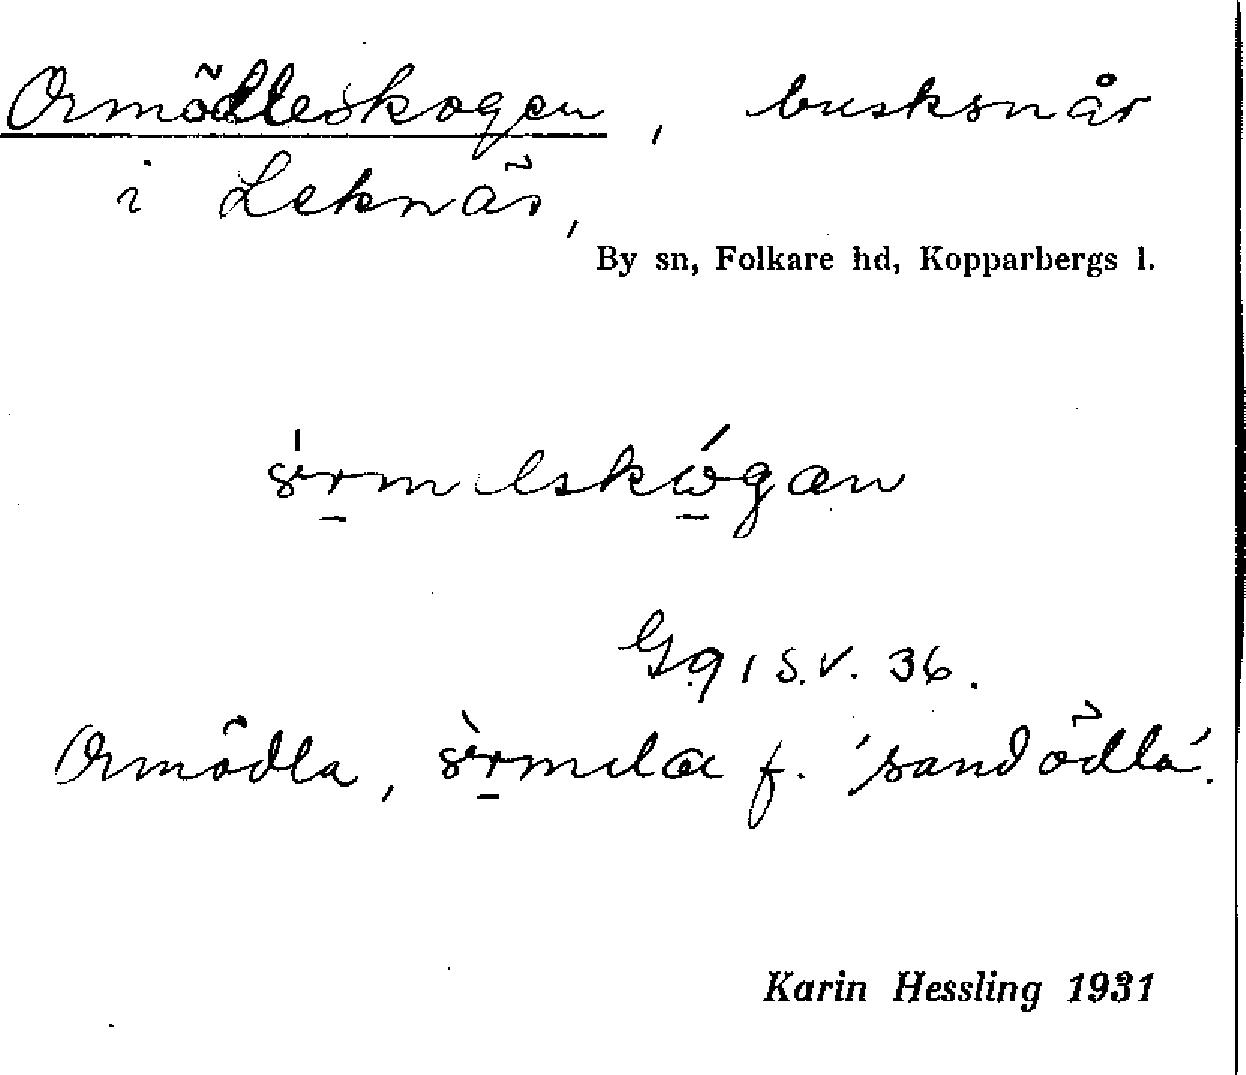 Ormödleskogen, busksnår
i Leknäs,
By sn, Folkare hd, Kopparbergs l.
G 91 S.V. 36.
Ormödla, f. 'sandödla'.
Karin Hessling 1931